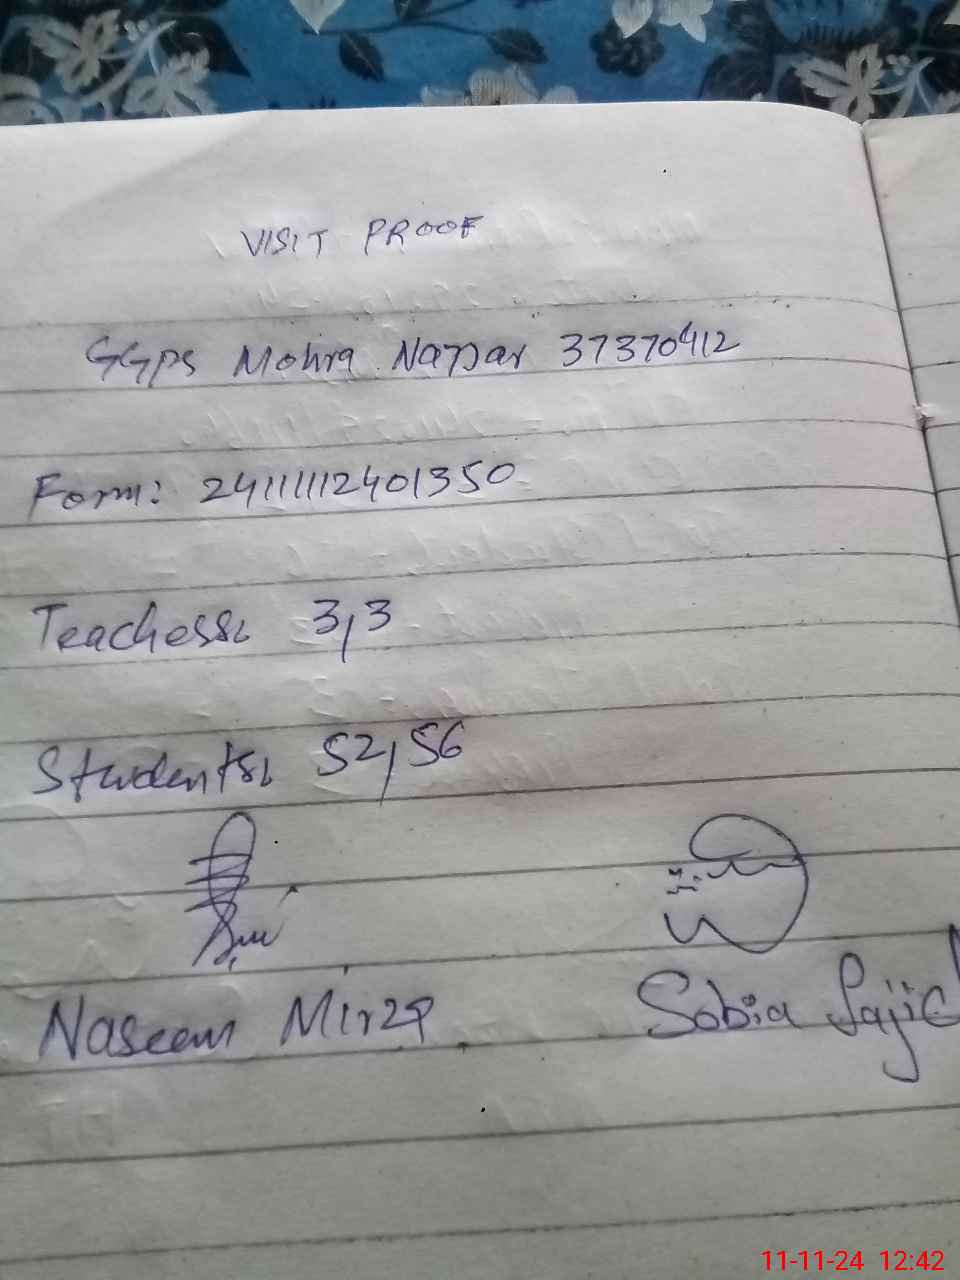 VISIT PROOF
GGPS Mohra Nagyar 37370412
Form: 24111112401350
Teachers: 3,3
Students: 52,56
Naseem Mirza
Sobia Sajid
11-11-24 12:42